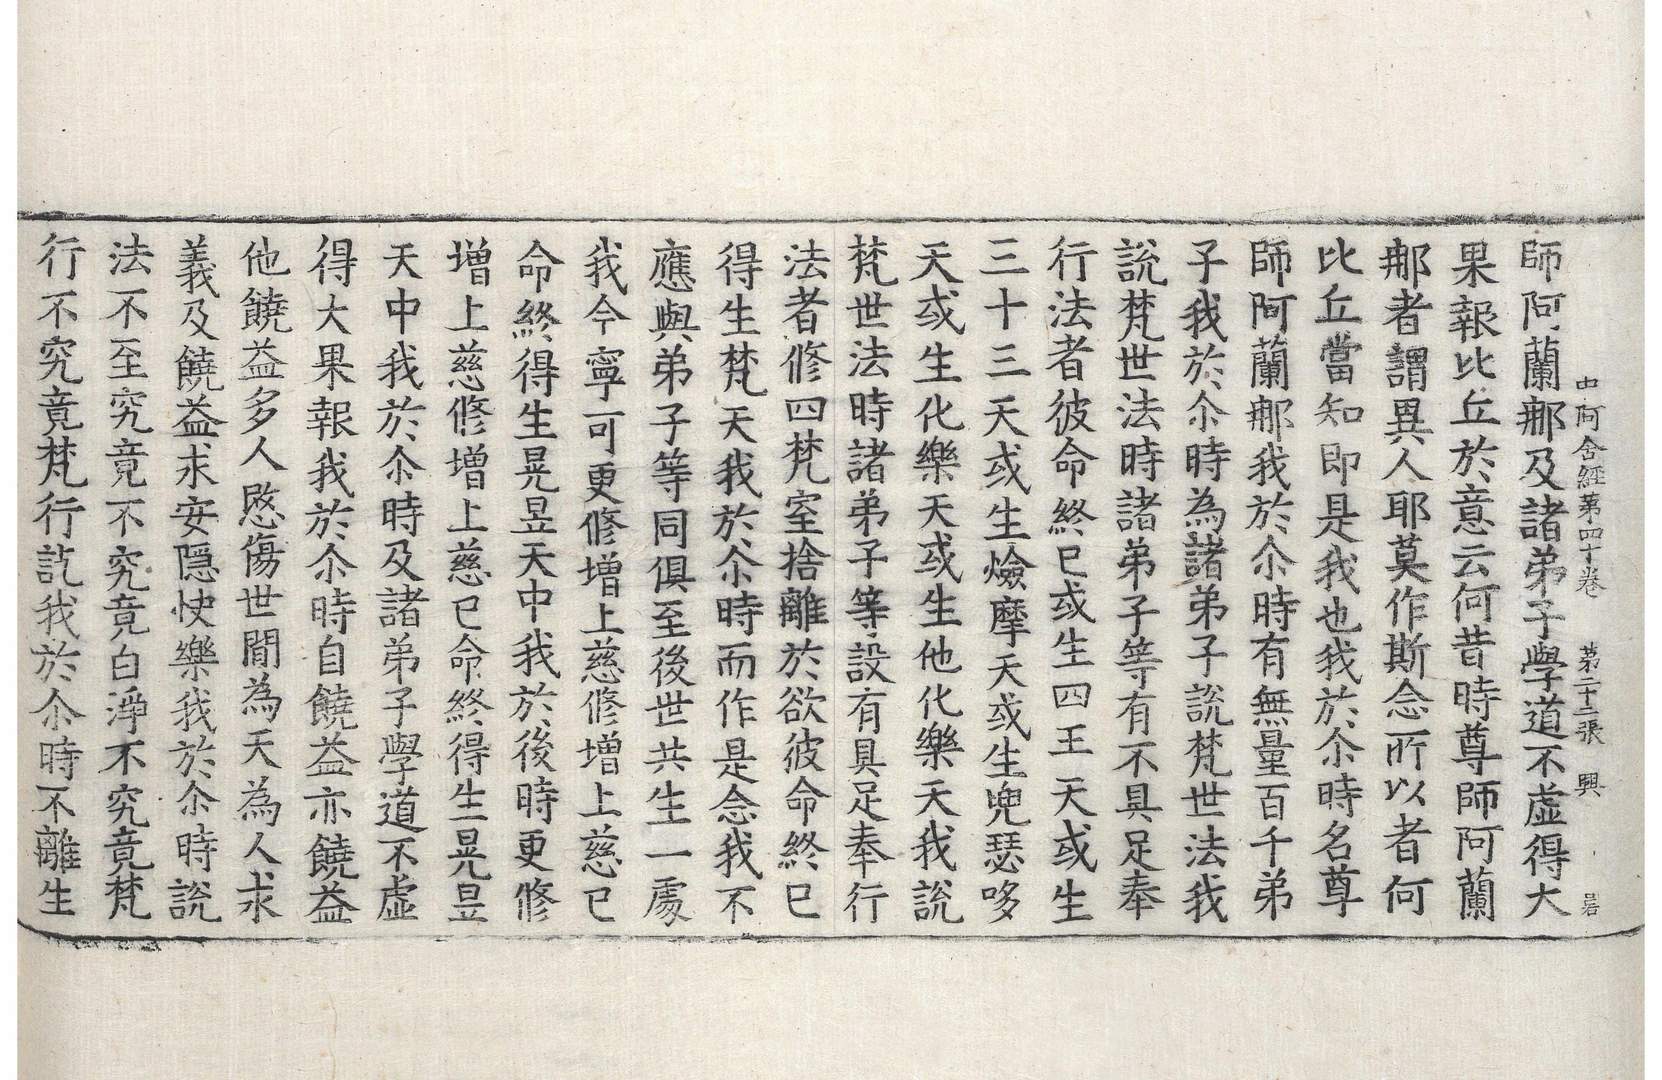 中阿含經第四十卷 第二十二張 興
師阿蘭郍及諸弟子學道不虛得大
果報比丘於意云何昔時尊師阿蘭
郍者謂異人耶莫作斯念所以者何
比丘當知即是我也我於尒時名尊
師阿蘭郍我於尒時有無量百千弟
子我於尒時為諸弟子說梵世法我
說梵世法時諸弟子等有不具足奉
行法者彼命終已或生四王天或生
三十三天或生㷿摩天或生兜瑟哆
天或生化樂天或生他化樂天我說
梵世法時諸弟子等設有具足奉行
法者修四梵室捨離於欲彼命終已
得生梵天我於尒時而作是念我不
應與弟子等同俱至後世共生一處
我今寧可更修增上慈修增上慈已
命終得生晃昱天中我於後時更修
增上慈修增上慈已命終得生晃昱
天中我於尒時及諸弟子學道不虛
得大果報我於尒時自饒益亦饒益
他饒益多人愍傷世閒為天為人求
義及饒益求安隱快樂我於尒時說
法不至究竟不究竟白淨不究竟梵
行不究竟梵行訖我於尒時不離生